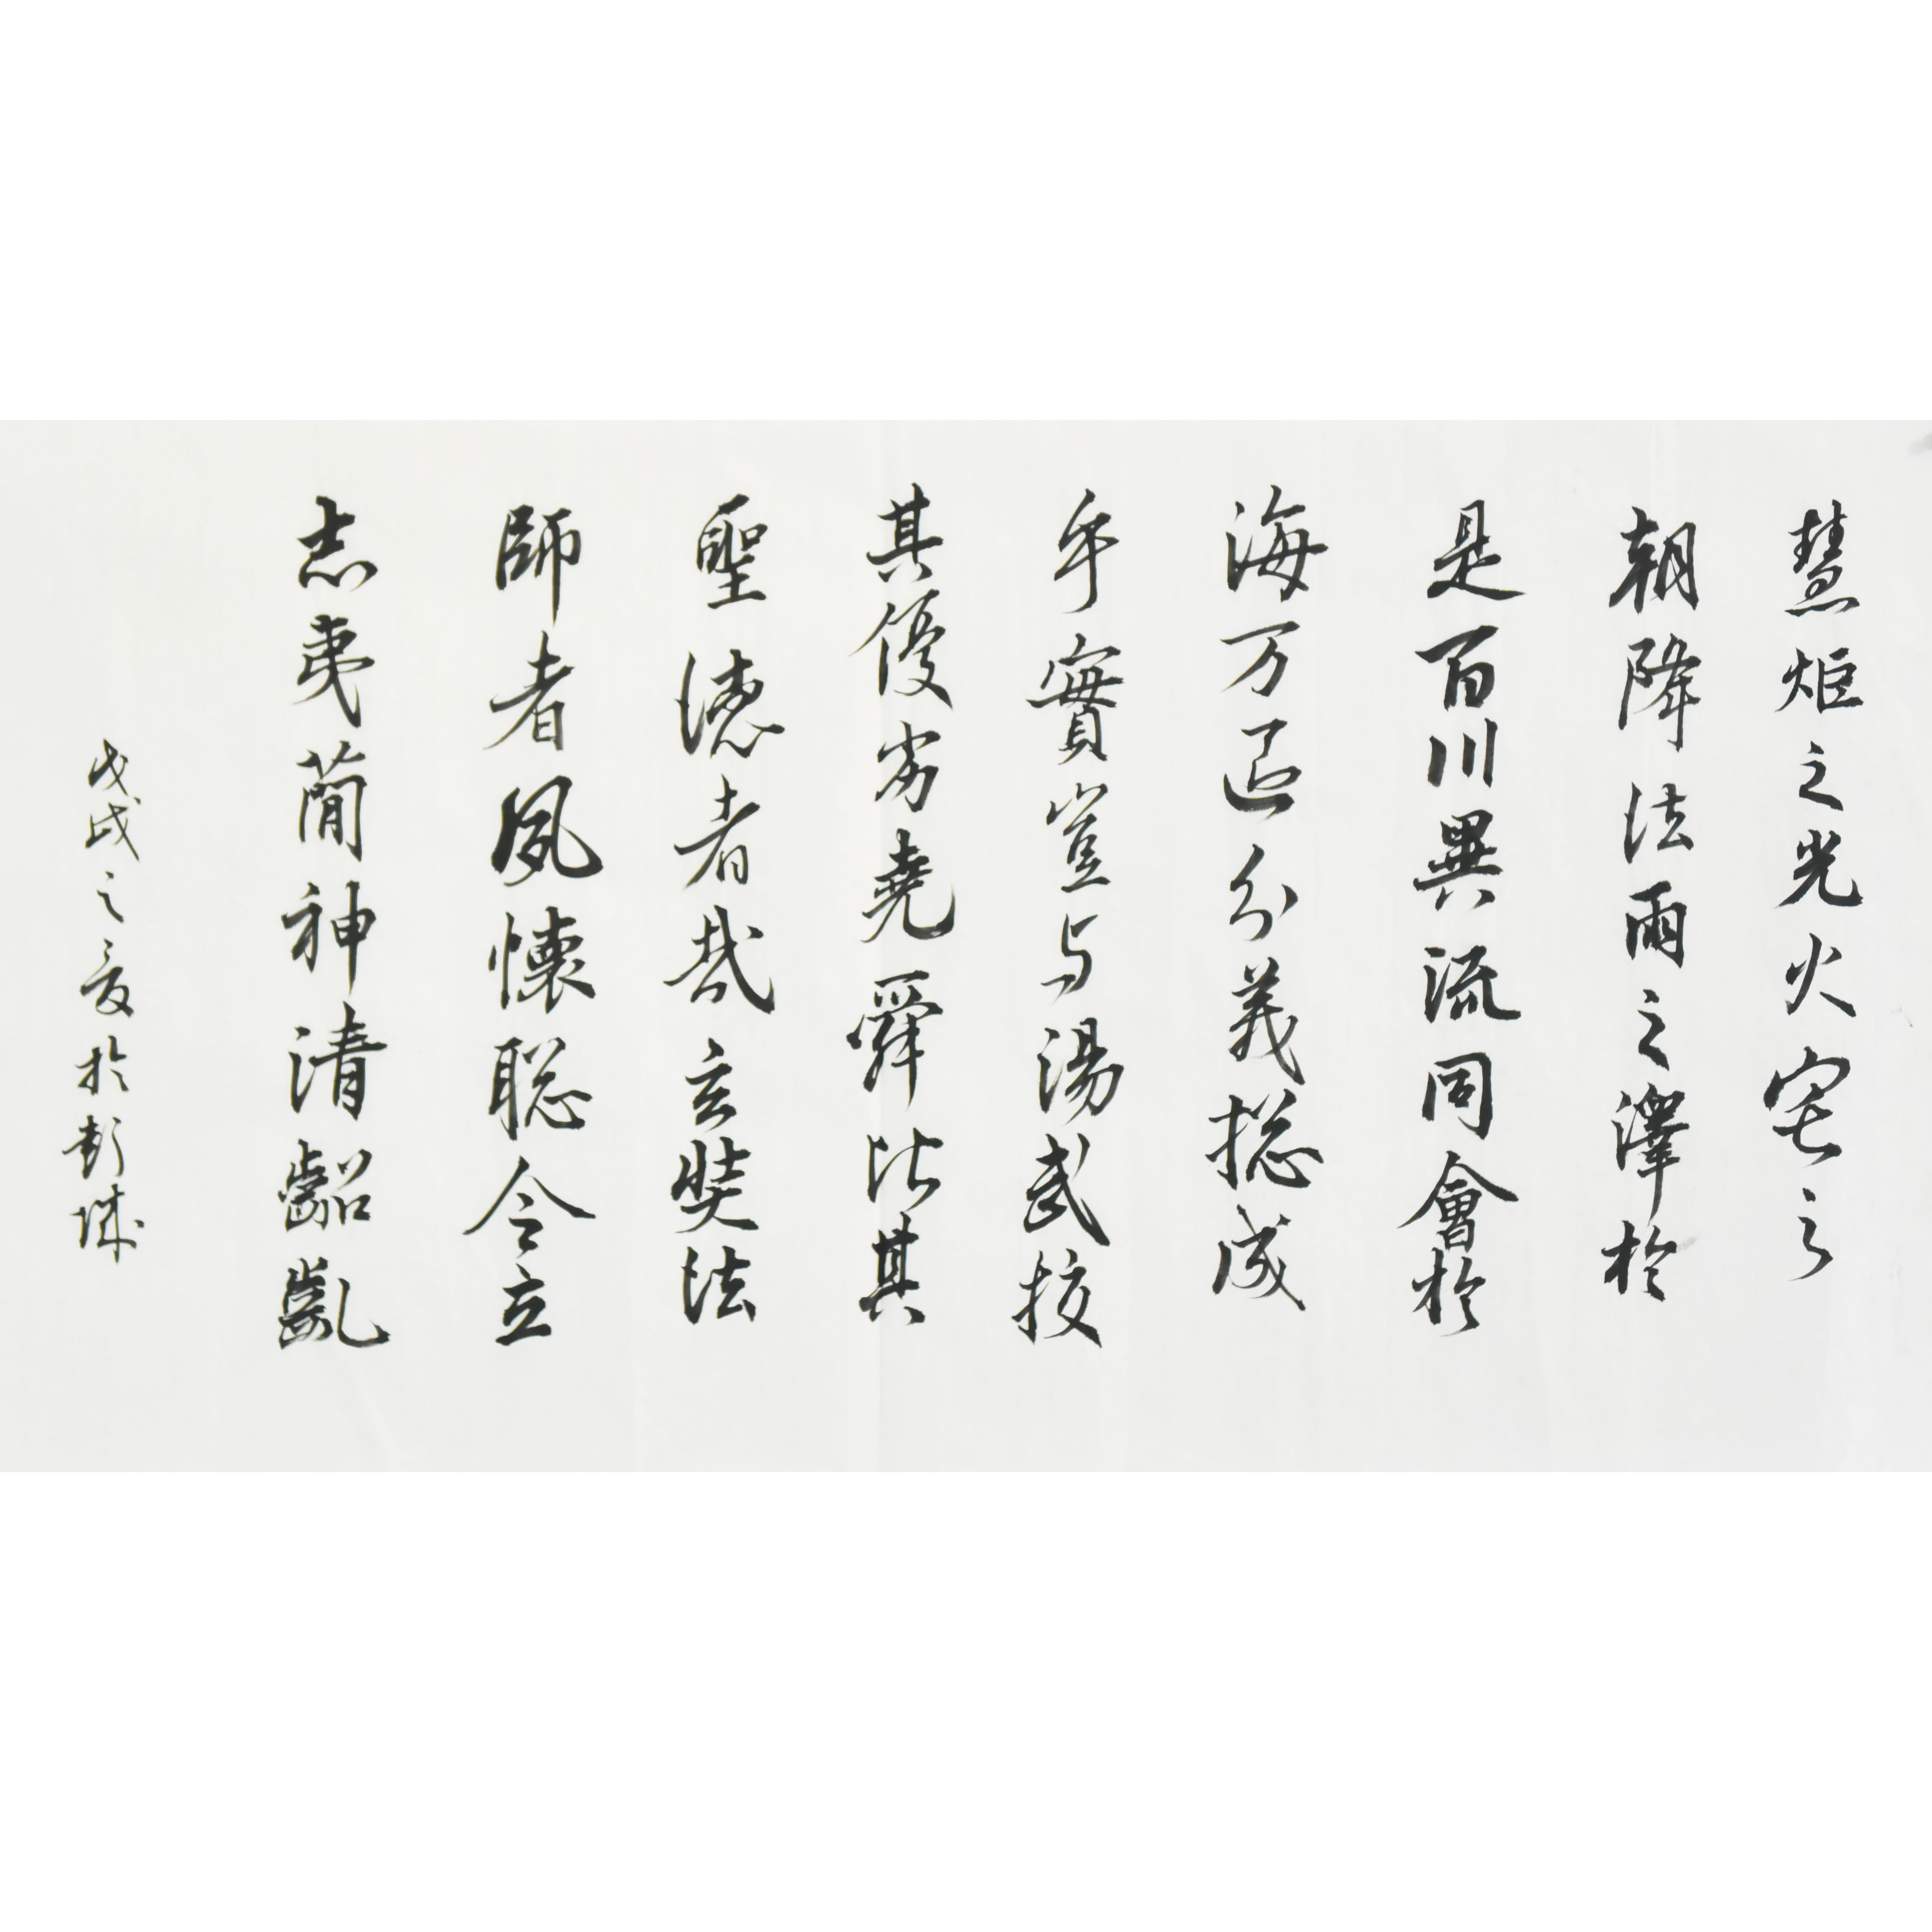 慧炬之光火宅之
朝降法雨之澤於
是百川異流同會於
海万區分義揔成
乎實豈与湯武挍
其優劣堯舜比其
聖德者哉玄奘法
師者夙懷聡令立
志夷簡神清齠齓
戊戌之夏於彭城